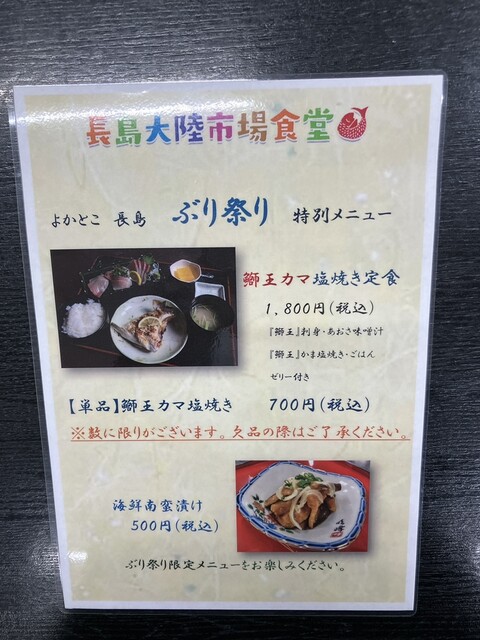 長島大陸市場食堂
よかとこ 長島 ぶり祭り 特別メニュー
鰤王カマ塩焼き定食
1,800円(税込)
『鰤王』刺身・あおさ味噌汁
『鰤王』かま塩焼き・ごはん
ゼリー付き
【単品】鰤王カマ塩焼き 700円(税込)
※数に限りがございます。欠品の際はご了承ください。
海鮮南蛮漬け
500円(税込)
ぶり祭り限定メニューをお楽しみください。